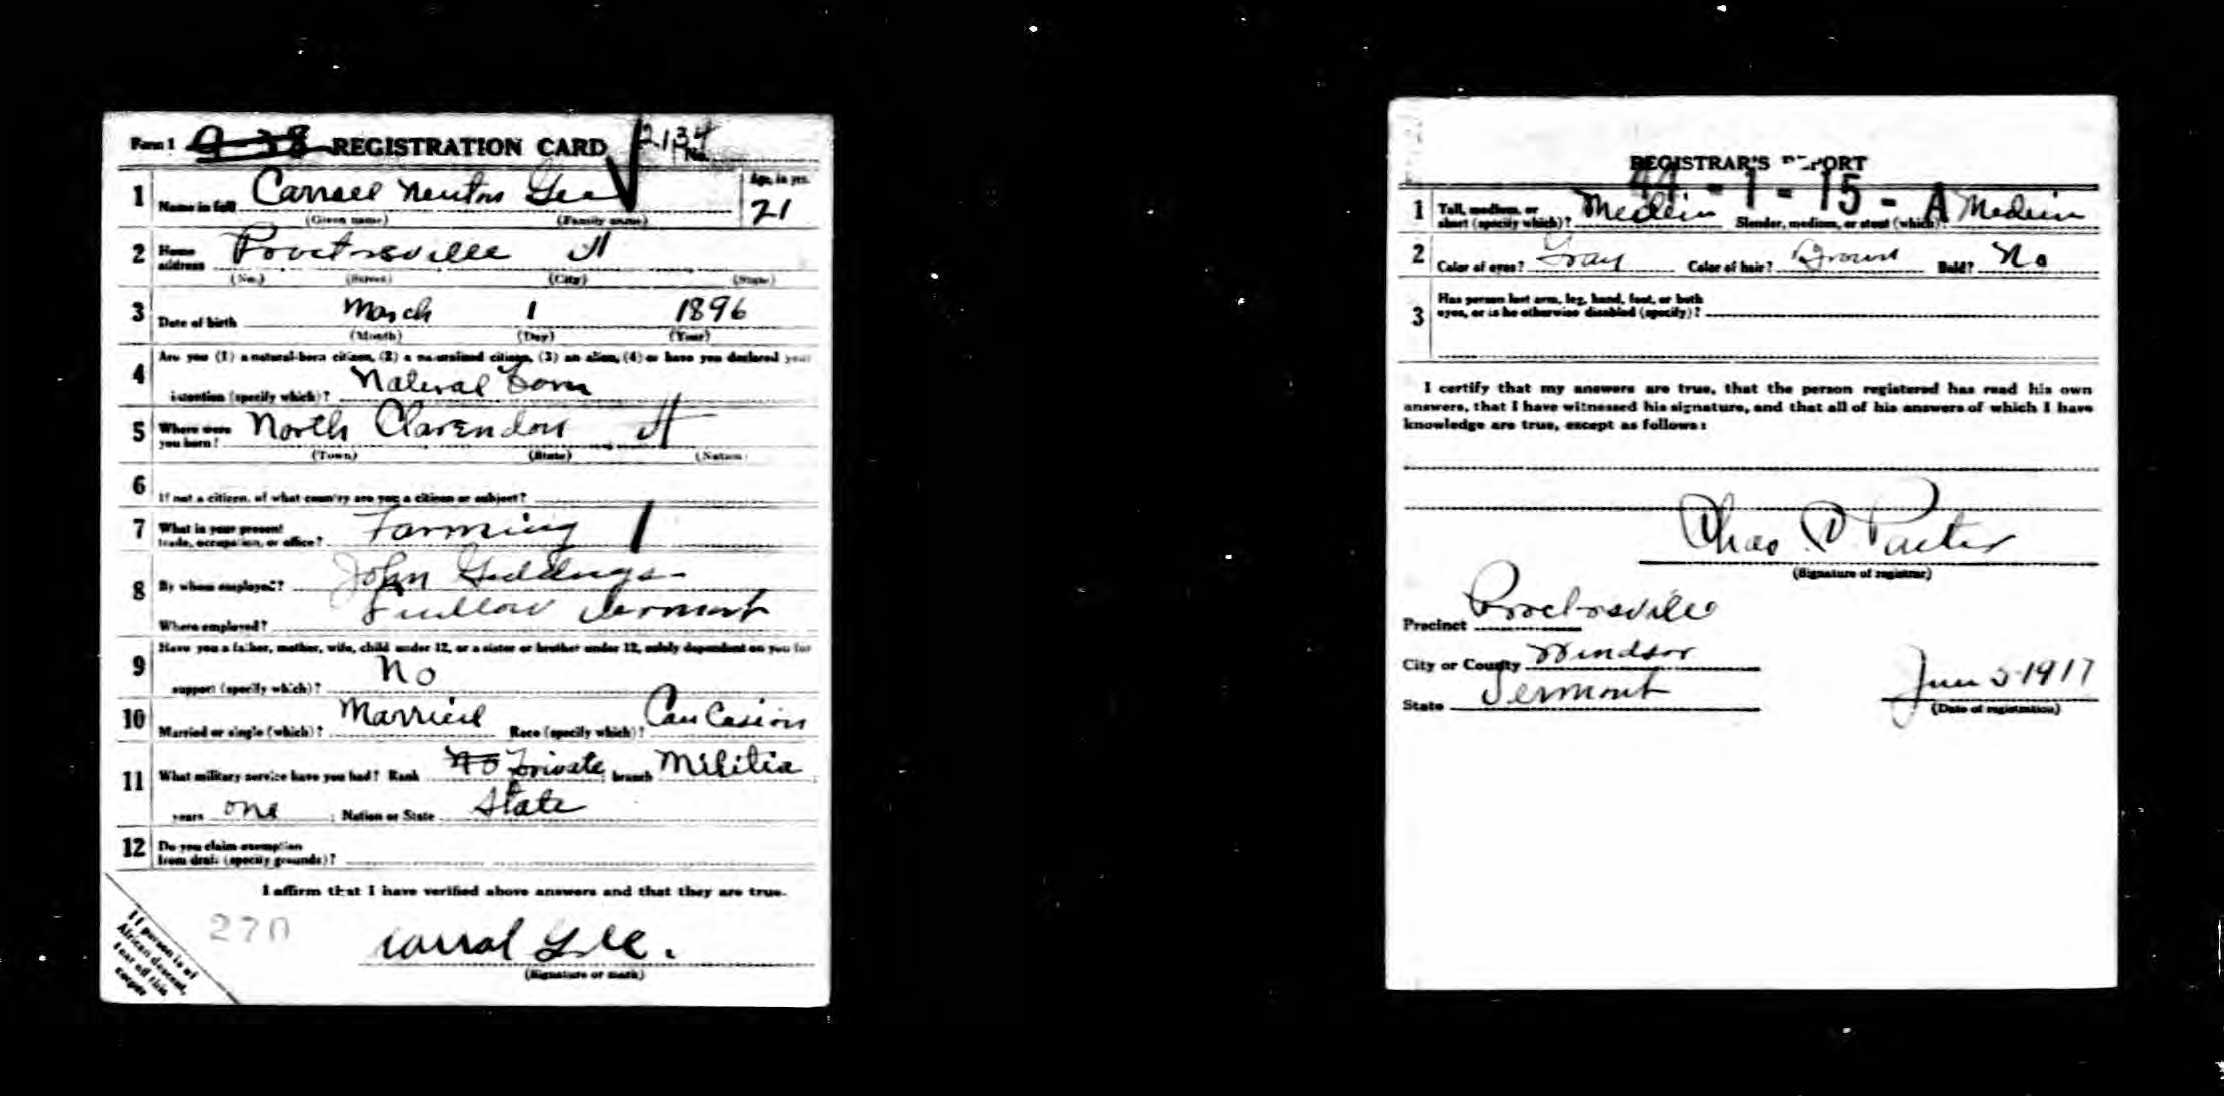 Form 1 9-38 REGISTRATION CARD 2134 No.
1 Name in full Carroll Newton Gee Age, in yrs. 21
(Given name) (Family name)
2 Home address Proctorsville Vt
(No.) (Street) (City) (State)
3 Date of birth March 1 1896
(Month) (Day) (Year)
4 Are you (1) a natural-born citizen, (2) a naturalized citizen, (3) an alien, (4) or have you declared your
intention (specify which)? Natural born
5 Where were you born? North Clarendon Vt
(Town) (State) (Nation)
6 If not a citizen, of what country are you a citizen or subject?
7 What is your present trade, occupation, or office? Farming
8 By whom employed? John Giddings
Where employed? Ludlow Vermont
9 Have you a father, mother, wife, child under 12, or a sister or brother under 12, solely dependent on you for
support (specify which)? No
10 Married or single (which)? Married Race (specify which)? Caucasion
11 What military service have you had? Rank No Private; branch Militia;
years one; Nation or State State
12 Do you claim exemption from draft (specify grounds)?
I affirm that I have verified above answers and that they are true.
270
Carral Gee.
(Signature or mark)
If person is of
African descent,
tear off this
corner
REGISTRAR'S REPORT
44-1-15-A
1 Tall, medium, or short (specify which)? Medium Slender, medium, or stout (which)? Medium
2 Color of eyes? Gray Color of hair? Brown Bald? No
3 Has person lost arm, leg, hand, foot, or both
eyes, or is he otherwise disabled (specify)?
I certify that my answers are true, that the person registered has read his own
answers, that I have witnessed his signature, and that all of his answers of which I have
knowledge are true, except as follows:
Chas
(Signature of registrar)
Precinct Proctorsville
City or County Windsor
State Vermont
June 5-1917
(Date of registration)